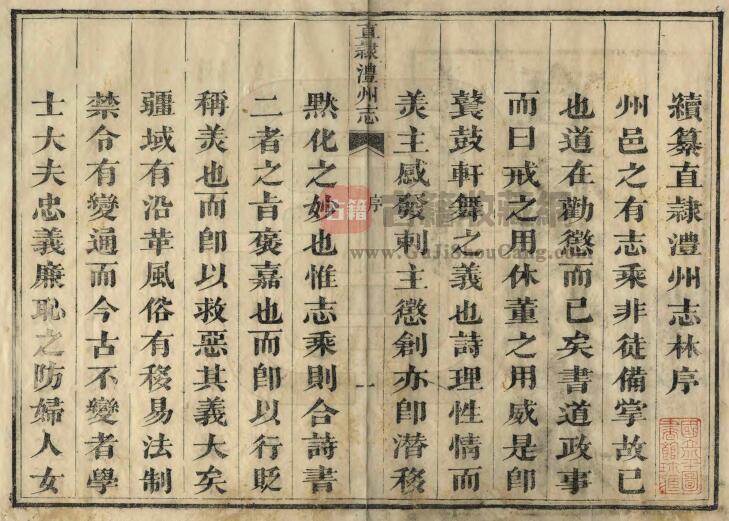 續纂直隷澧州志林序
州邑之有志乘非徒備掌故已
也道在勸懲而已矣書道政事
而曰戒之用休董之用威是卽
鼚鼓軒舞之義也詩理性情而
美主感發刺主懲創亦卽潜移
直隷澧州志
序
一
默化之妙也惟志乘則合詩書
二者之旨褒嘉也而卽以行貶
稱美也而卽以救惡其義大矣
疆域有沿革風俗有移易法制
禁令有變通而今古不變者學
士大夫忠義廉恥之防婦人女
古籍
www.GuJiShouCang.com